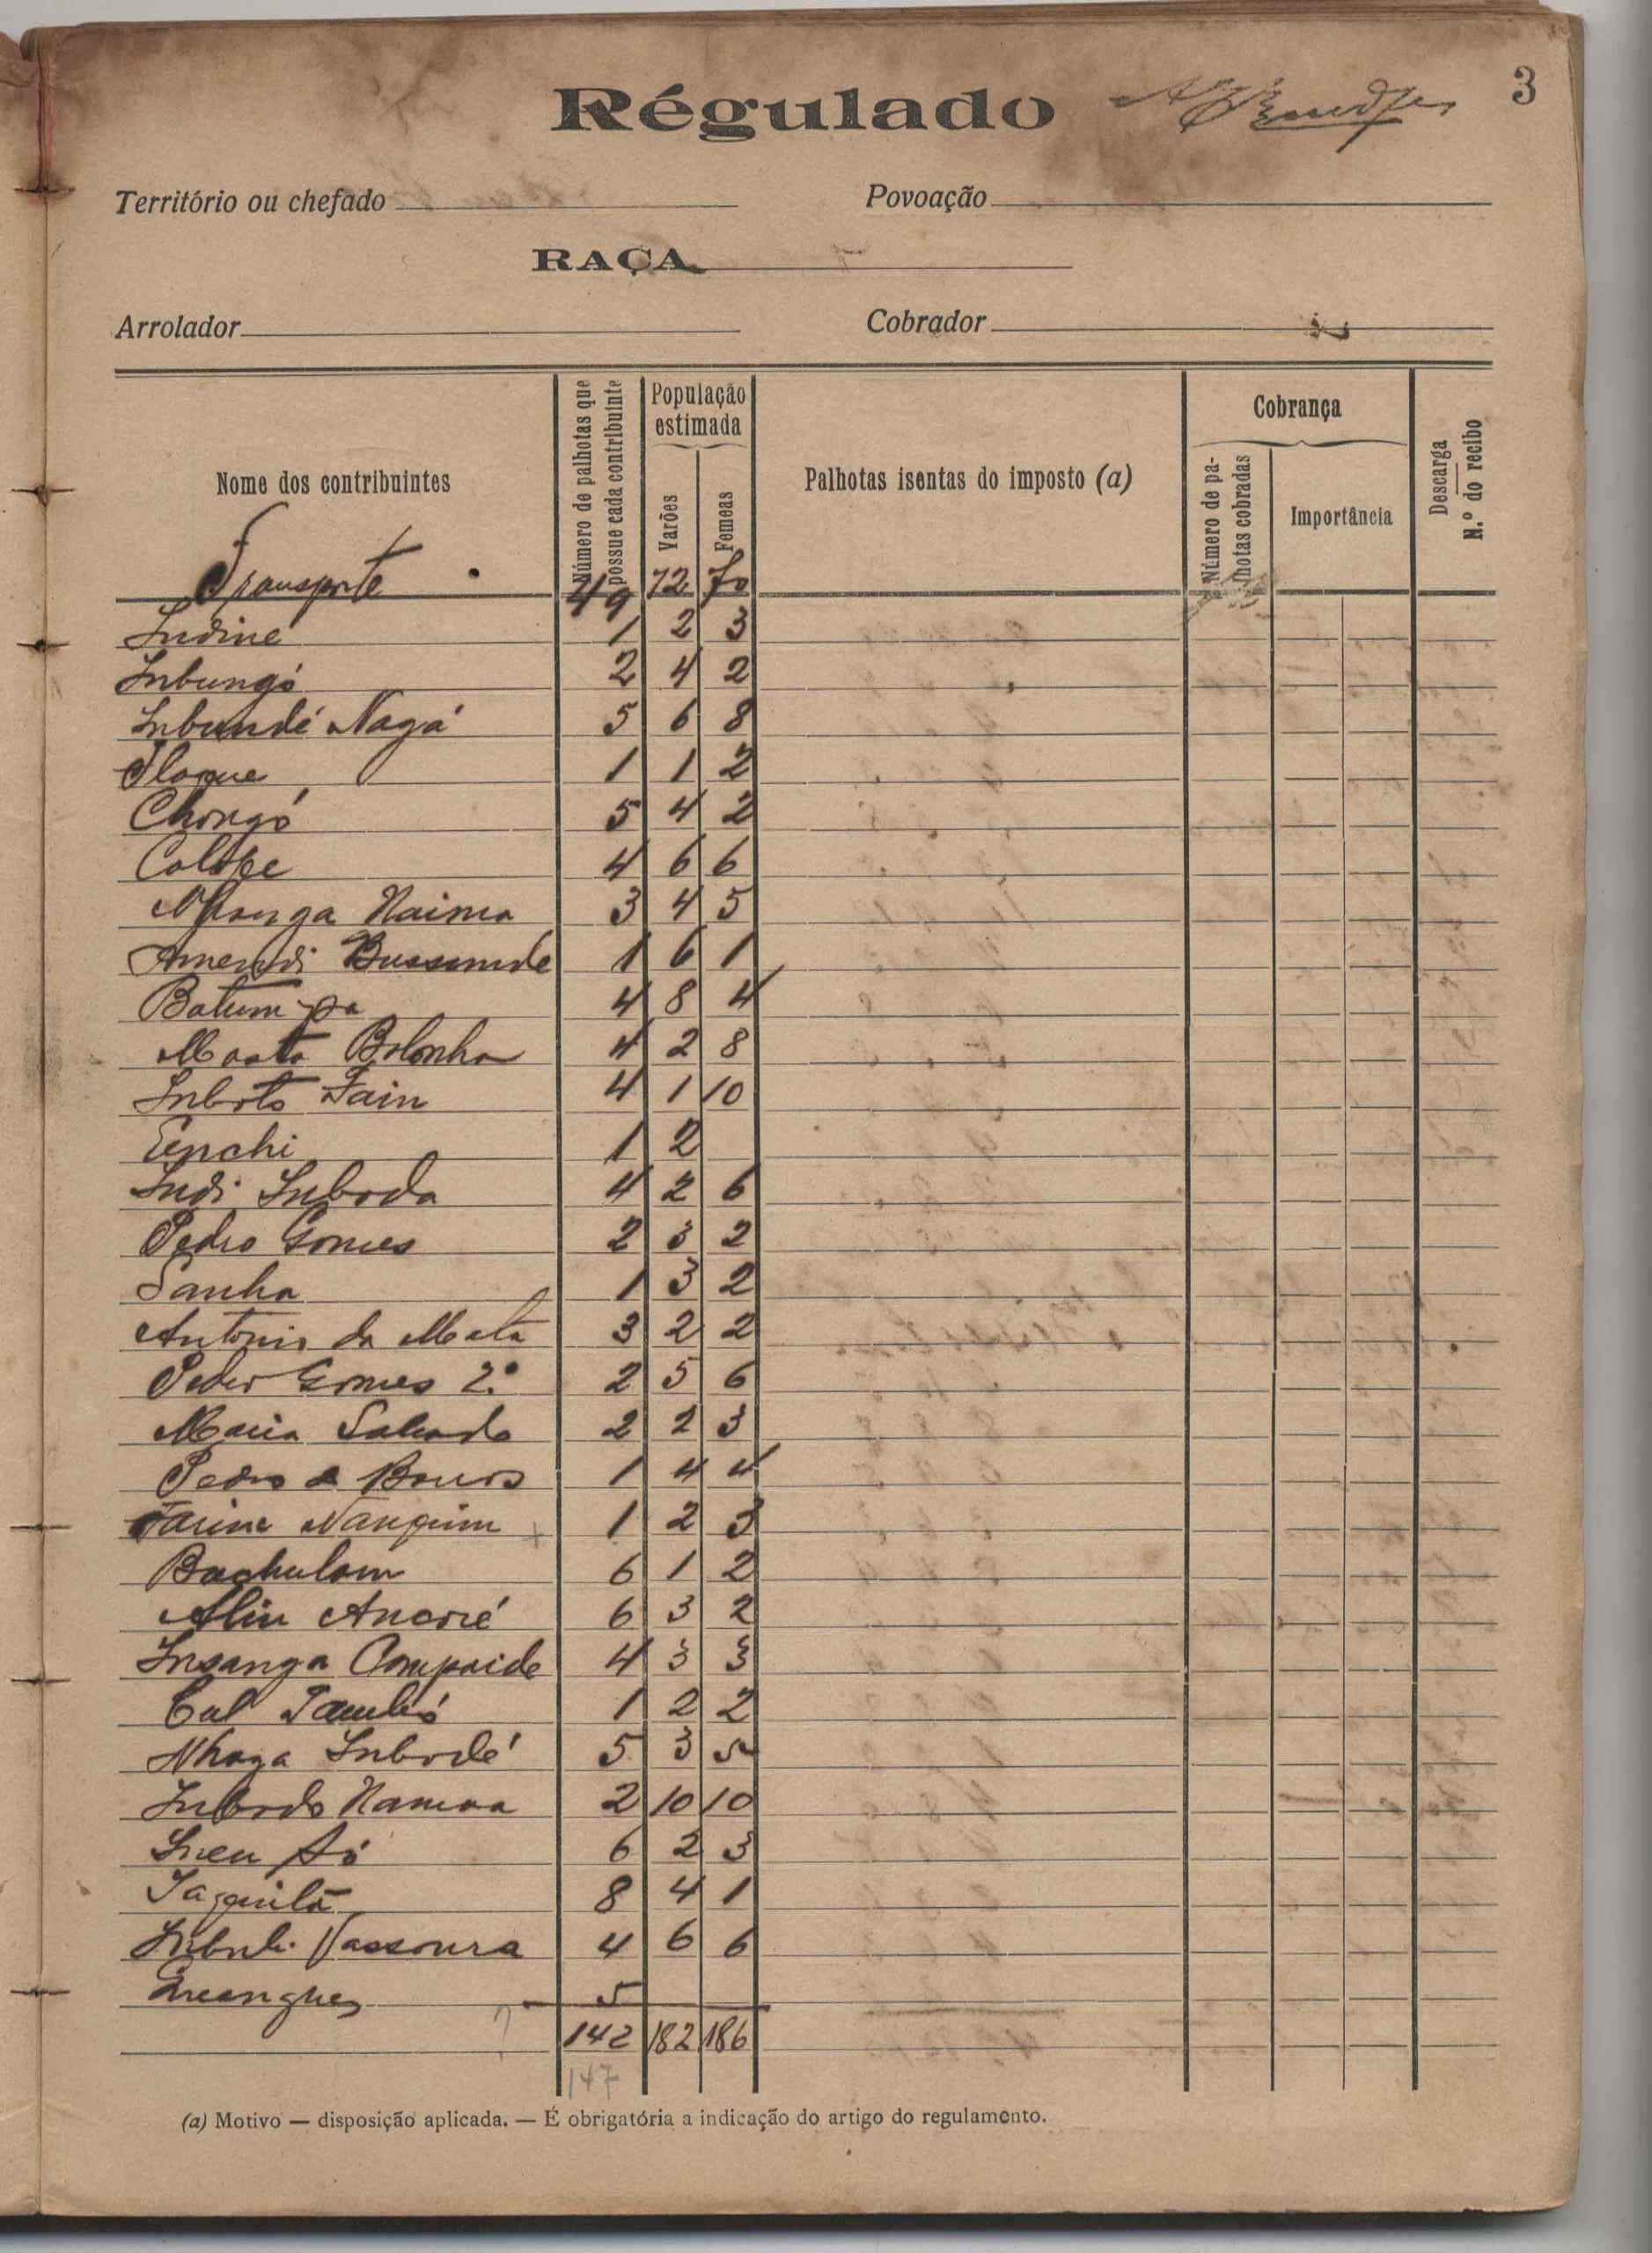 3
Régulado
Território ou chefado Povoação
RAÇA
Arrolador Cobrador
Nome dos contribuintes
Número de palhotas que possue cada contribuinte
População estimada
Varões
Femeas
Palhotas isentas do imposto (a)
Cobrança
Número de palhotas cobradas
Importância
Descarga
N.º do recibo
Transporte 49 72 70
Indiné 1 2 3
Inbungó 2 4 2
Inbundé Nagá 5 6 8
1 1 2
Chongó 5 4 2
4 6 6
Naima 3 4 5
1 6 1
Batum pa 4 8 4
4 2 8
Inboto Fain 4 1 10
1 2
Indi Inboda 4 2 6
Pedro Gomes 2 3 2
Sanha 1 3 2
Antonio da Mata 3 2 2
Pedro Gomes 2.º 2 5 6
Maria 2 2 3
Pedro 1 4 4
Nanquim 1 2 3
Bachulam 6 1 2
Aliu 6 3 2
Insanga 4 3 3
1 2 2
Nhaga Inbodé 5 3 5
Inbodo 2 10 10
6 2 3
8 4 1
Vassoura 4 6 6
5
142 182 186
147
(a) Motivo — disposição aplicada. — É obrigatória a indicação do artigo do regulamento.